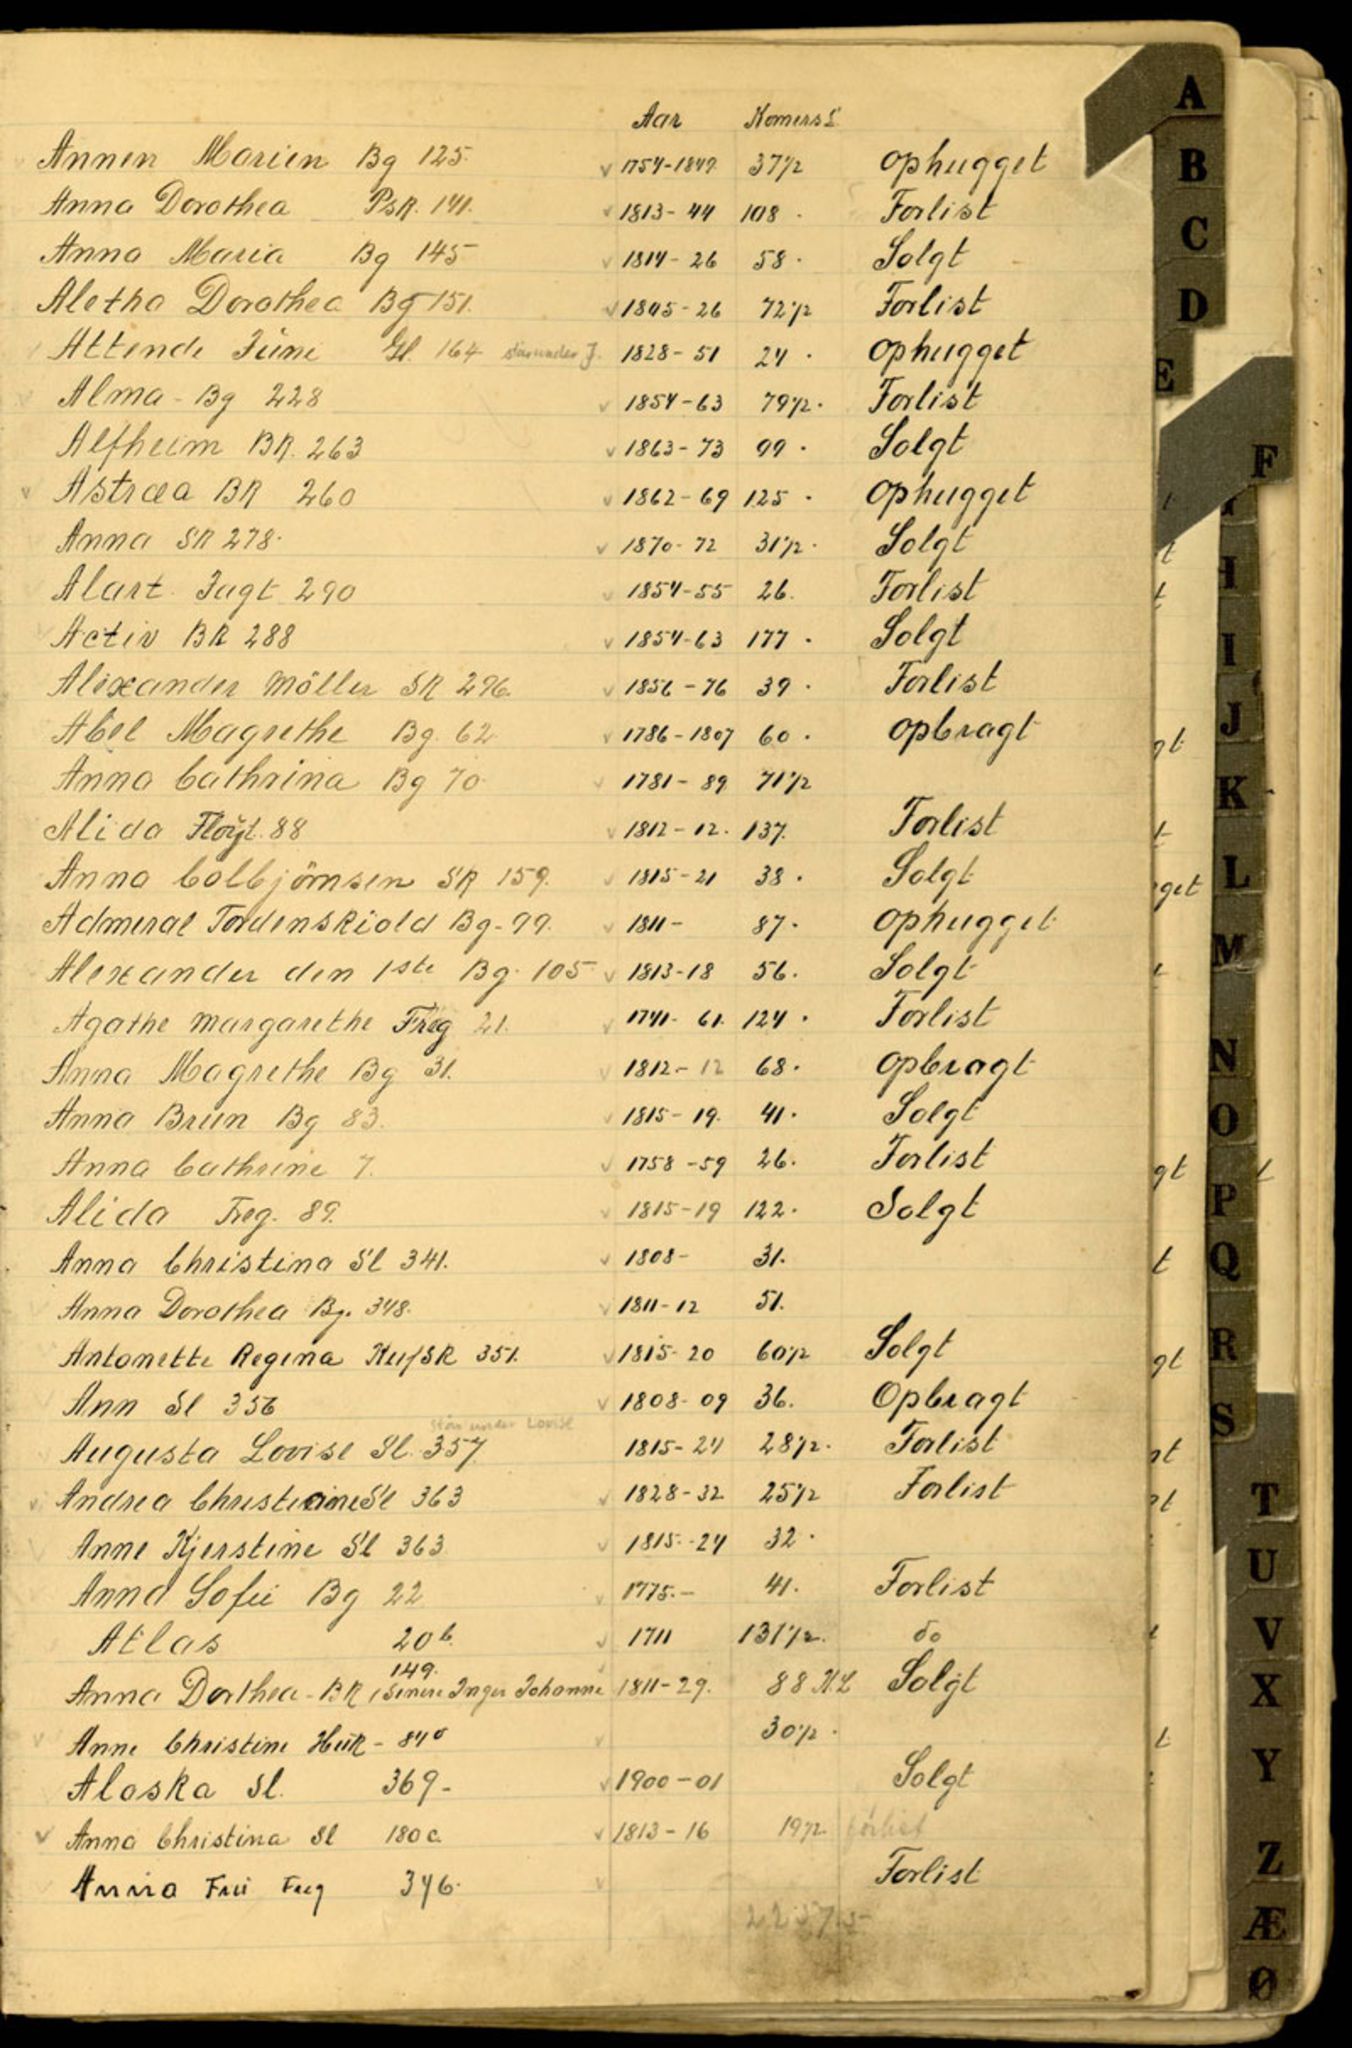 Aar Komers L.
Annen Marien Bg 125. v 1754-1849. 37½ Ophugget
Anna Dorothea PsK. 141. v 1813-44 108. Forlist
Anna Maria Bg 145 v 1814-26 58. Solgt
Aletha Dorothea Bg 151. v 1805-26 72½ Forlist
Attende Juni Gl. 164 står under J. 1828-51 24. Ophugget
Alma - Bg 228 v 1854-63 79½. Forlist
Alfheim BK. 263 v 1863-73 99. Solgt
v Astræa BK 260 v 1862-69 125. Ophugget
Anna SK 278. v 1870-72 31½. Solgt
Alart Jagt 290 v 1854-55 26. Forlist
Activ BK 288 v 1854-63 177. Solgt
Alixander Möller SK 296. v 1856-76 39. Forlist
Abel Magrethe Bg. 62 v 1786-1807 60. Opbragt
Anna Cathrina Bg 70. v 1781-89 71½
Alida Floÿt. 88 v 1812-12. 137. Forlist
Anna Colbjörnsen SK 159. v 1815-21 38. Solgt
Admiral Tordenskiold Bg-99. v 1811- 87. Ophugget
Alexander den 1ste Bg. 105 v 1813-18 56. Solgt
Agathe Margarethe Freg 21. v 1741-61. 124. Forlist
Anna Magrethe Bg 31. v 1812-12 68. Opbragt
Anna Brun Bg 83. v 1815-19. 41. Solgt
Anna Cathrine 7. v 1758-59 26. Forlist
Alida Freg. 89. v 1815-19 122. Solgt
Anna Christina Sl 341. v 1808- 31.
Anna Dorothea Bg. 348. v 1811-12 51.
Antonette Regina Kuf SK 351. v 1815-20 60½ Solgt
Ann Sl 356 v 1808-09 36. Opbragt
står under Lovise
Augusta Lovise Sl. 357 1815-24 28½. Forlist
v Andrea Christiane Sl 363 v 1828-32 25½ Forlist
Anne Kjerstine Sl 363 v 1815-24 32.
Anna Sofie Bg 22 v 1775.- 41. Forlist
Atlas 20b. v 1711 131½. do
149.
Anna Dorthea - BK (Senere Inger Johanne 1811-29. 88 K.L Solgt
v Anne Christine Huk - v 30½.
Alaska Sl. 369- v 1900-01 Solgt
v Anna Christina Sl 180c. v 1813-16 19½ forlist
Anna Frii Freg 346. v Forlist
A
B
C
D
E
F
H
I
J
K
L
M
N
O
P
Q
R
S
T
U
V
X
Y
Z
Æ
Ø